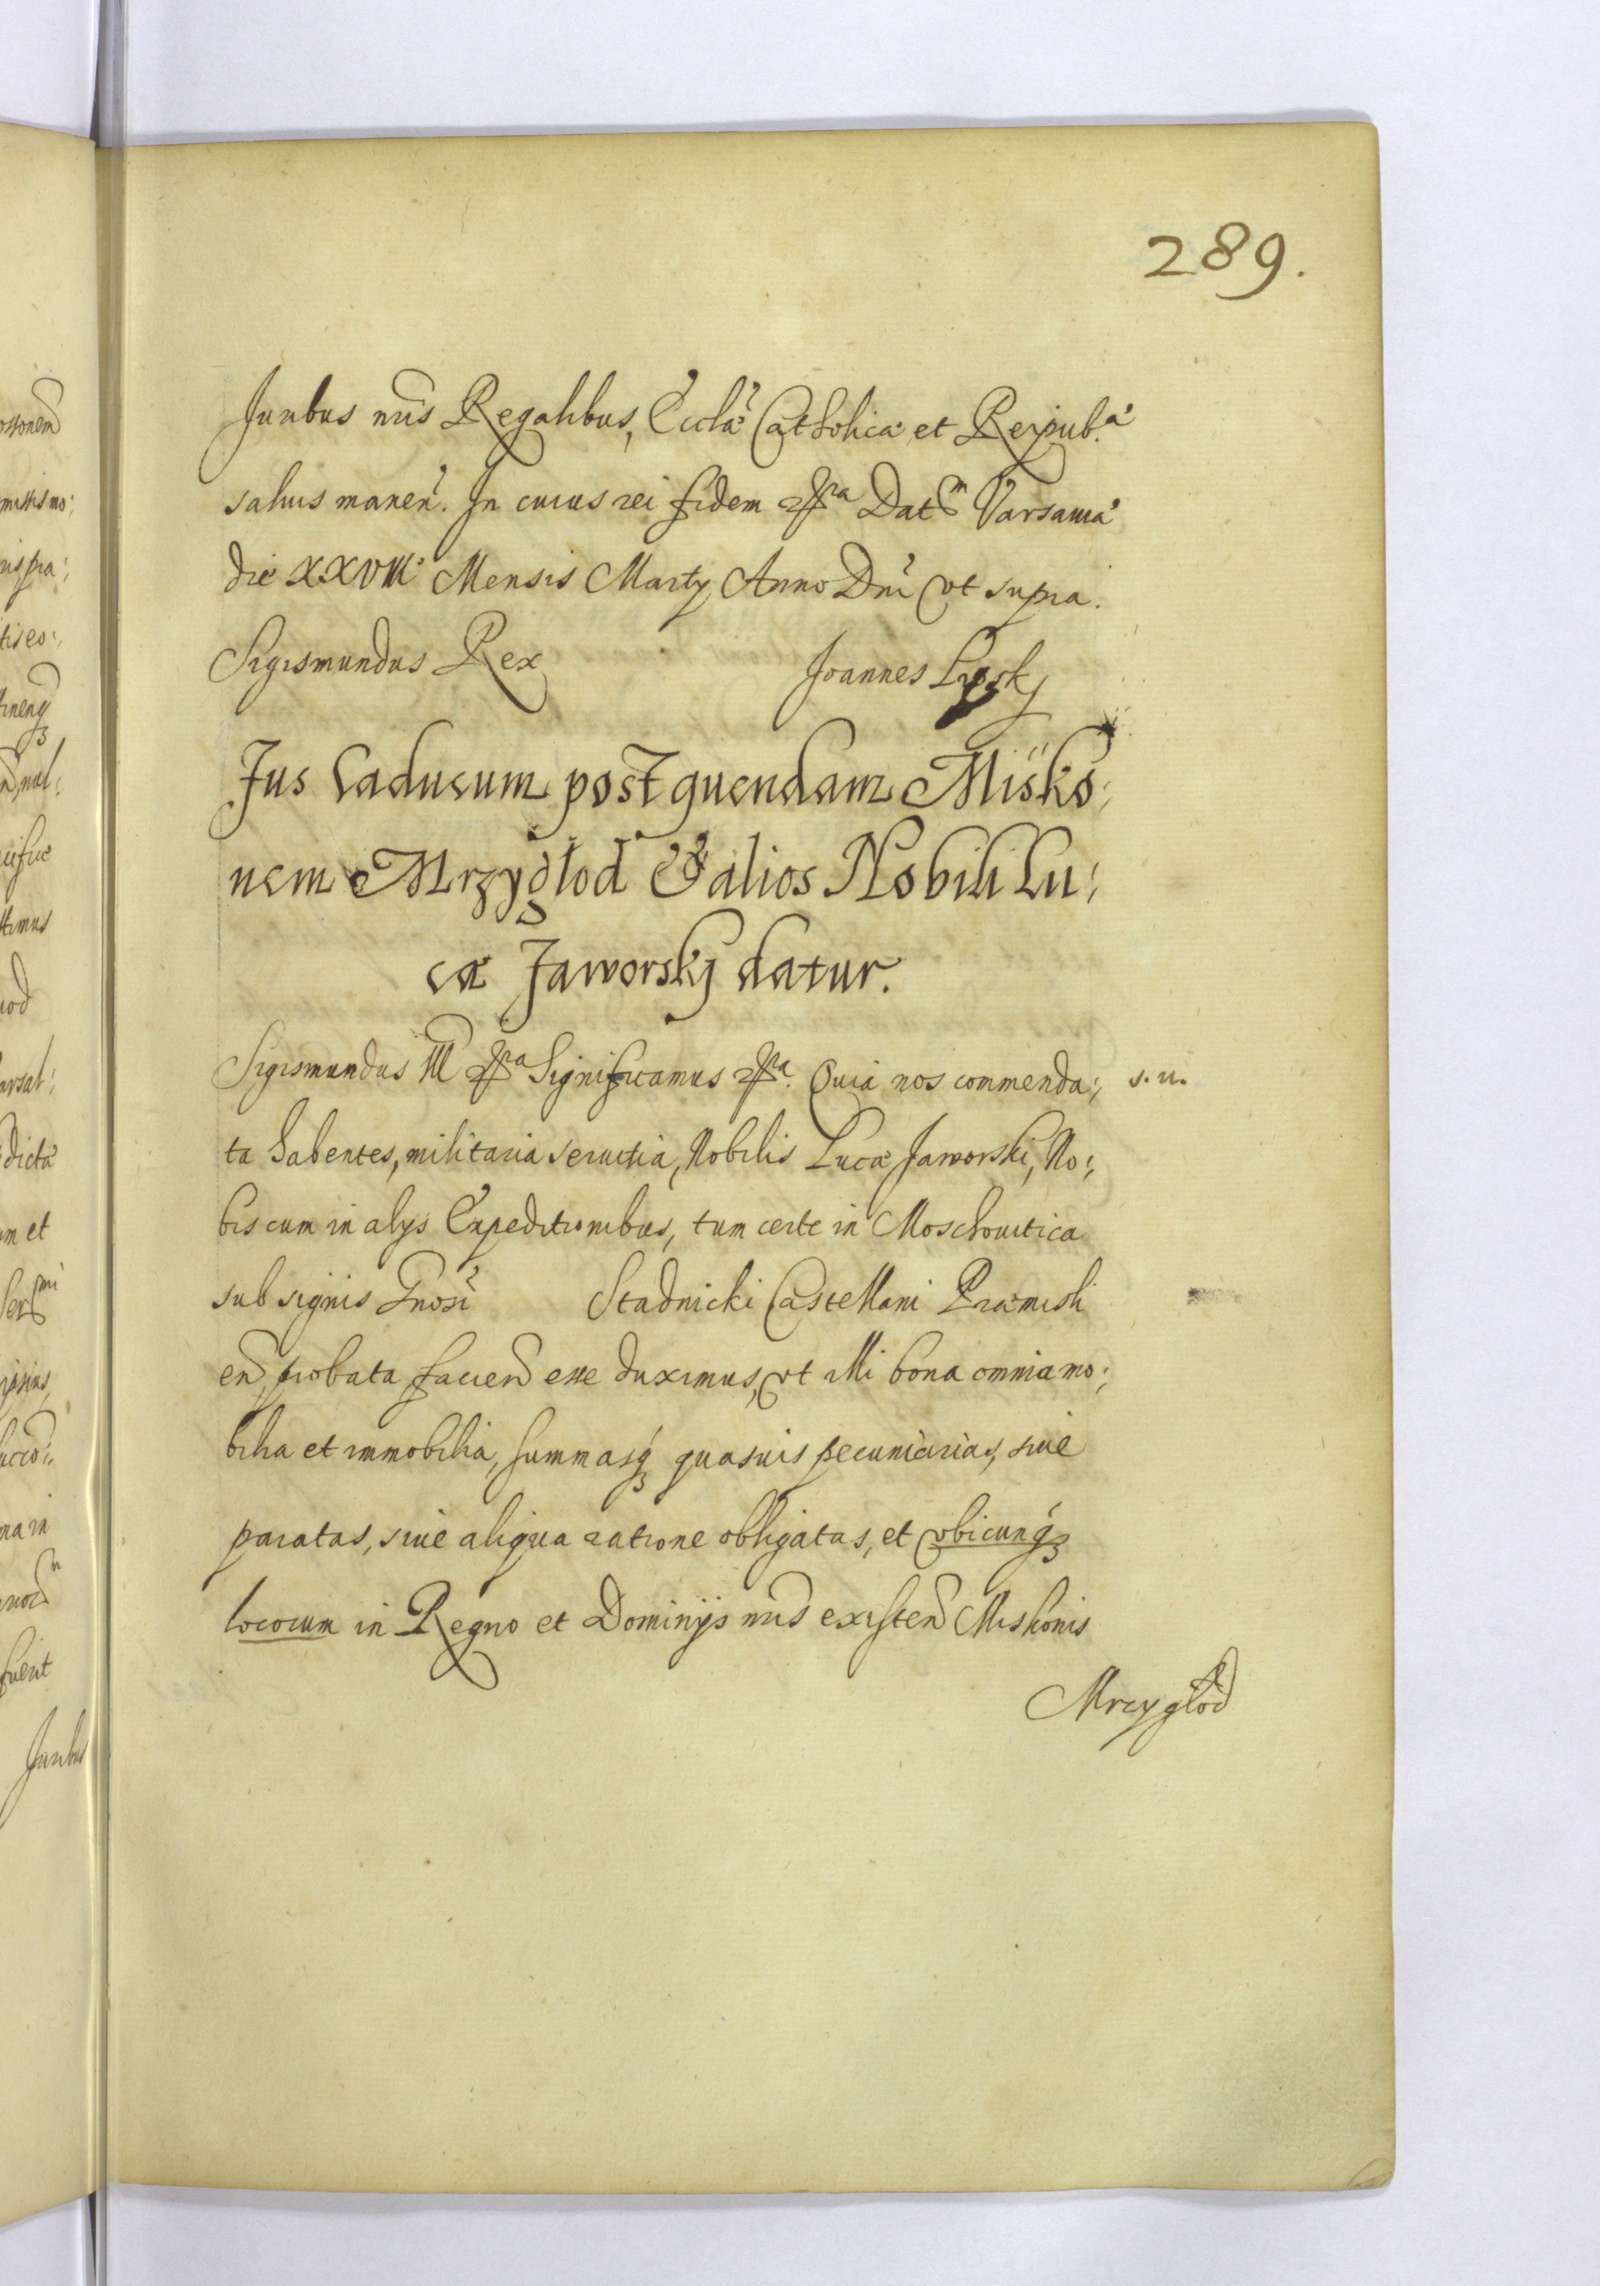 289.
Juribus nris Regalibus, Eccla Catholica et Reipub.a
saluis manen. In cuius rei fidem etc̃ra Datm Varsauiæ
die XXVII Mensis Martij Anno Dni vt supra.
Sigismundus Rex Joannes Lipskj
Jus Caducum post quendam Misko:
nem Mrzygłod & alios Nobili Lu:
cæ Jaworskj datur.
Sigismundus III etc̃ra Significamus etc̃ra. Quia nos commenda: s. n.
ta habentes, militaria seruitia, Nobilis Luca Jaworski, No:
biscum in alijs Expeditionibus, tum certe in Moschouitica
sub signis Gnosi Stadnicki Castellani Præmisli
en probata facien esse duximus, vt illi bona omnia mo:
bilia et immobilia, summasq quasuis pecuniarias, siue
paratas, siue aliqua ratione obligatas, et vbicunq
locorum in Regno et Dominijs nris existen Miskonis
Mrzygłod